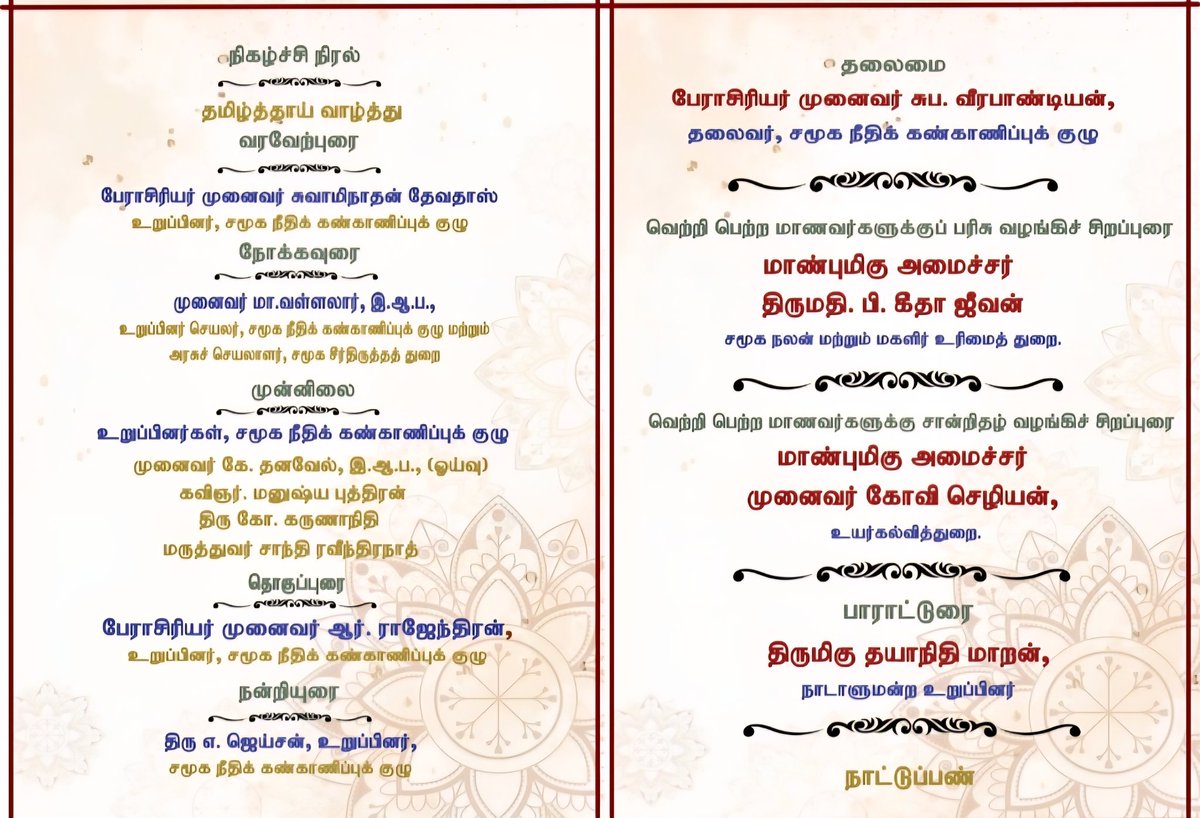 நிகழ்ச்சி நிரல்
தமிழ்த்தாய் வாழ்த்து
வரவேற்புரை
பேராசிரியர் முனைவர் சுவாமிநாதன் தேவதாஸ்
உறுப்பினர், சமூக நீதிக் கண்காணிப்புக் குழு
நோக்கவுரை
முனைவர் மா.வள்ளலார், இ.ஆ.ப.,
உறுப்பினர் செயலர், சமூக நீதிக் கண்காணிப்புக் குழு மற்றும்
அரசுச் செயலாளர், சமூக சீர்திருத்தத் துறை
முன்னிலை
உறுப்பினர்கள், சமூக நீதிக் கண்காணிப்புக் குழு
முனைவர் கே. தனவேல், இ.ஆ.ப., (ஓய்வு)
கவிஞர். மனுஷ்ய புத்திரன்
திரு கோ. கருணாநிதி
மருத்துவர் சாந்தி ரவீந்திரநாத்
தொகுப்புரை
பேராசிரியர் முனைவர் ஆர். ராஜேந்திரன்,
உறுப்பினர், சமூக நீதிக் கண்காணிப்புக் குழு
நன்றியுரை
திரு எ. ஜெய்சன், உறுப்பினர்,
சமூக நீதிக் கண்காணிப்புக் குழு
தலைமை
பேராசிரியர் முனைவர் சுப. வீரபாண்டியன்,
தலைவர், சமூக நீதிக் கண்காணிப்புக் குழு
வெற்றி பெற்ற மாணவர்களுக்குப் பரிசு வழங்கிச் சிறப்புரை
மாண்புமிகு அமைச்சர்
திருமதி. பி. கீதா ஜீவன்
சமூக நலன் மற்றும் மகளிர் உரிமைத் துறை.
வெற்றி பெற்ற மாணவர்களுக்கு சான்றிதழ் வழங்கிச் சிறப்புரை
மாண்புமிகு அமைச்சர்
முனைவர் கோவி செழியன்,
உயர்கல்வித்துறை.
பாராட்டுரை
திருமிகு தயாநிதி மாறன்,
நாடாளுமன்ற உறுப்பினர்
நாட்டுப்பண்